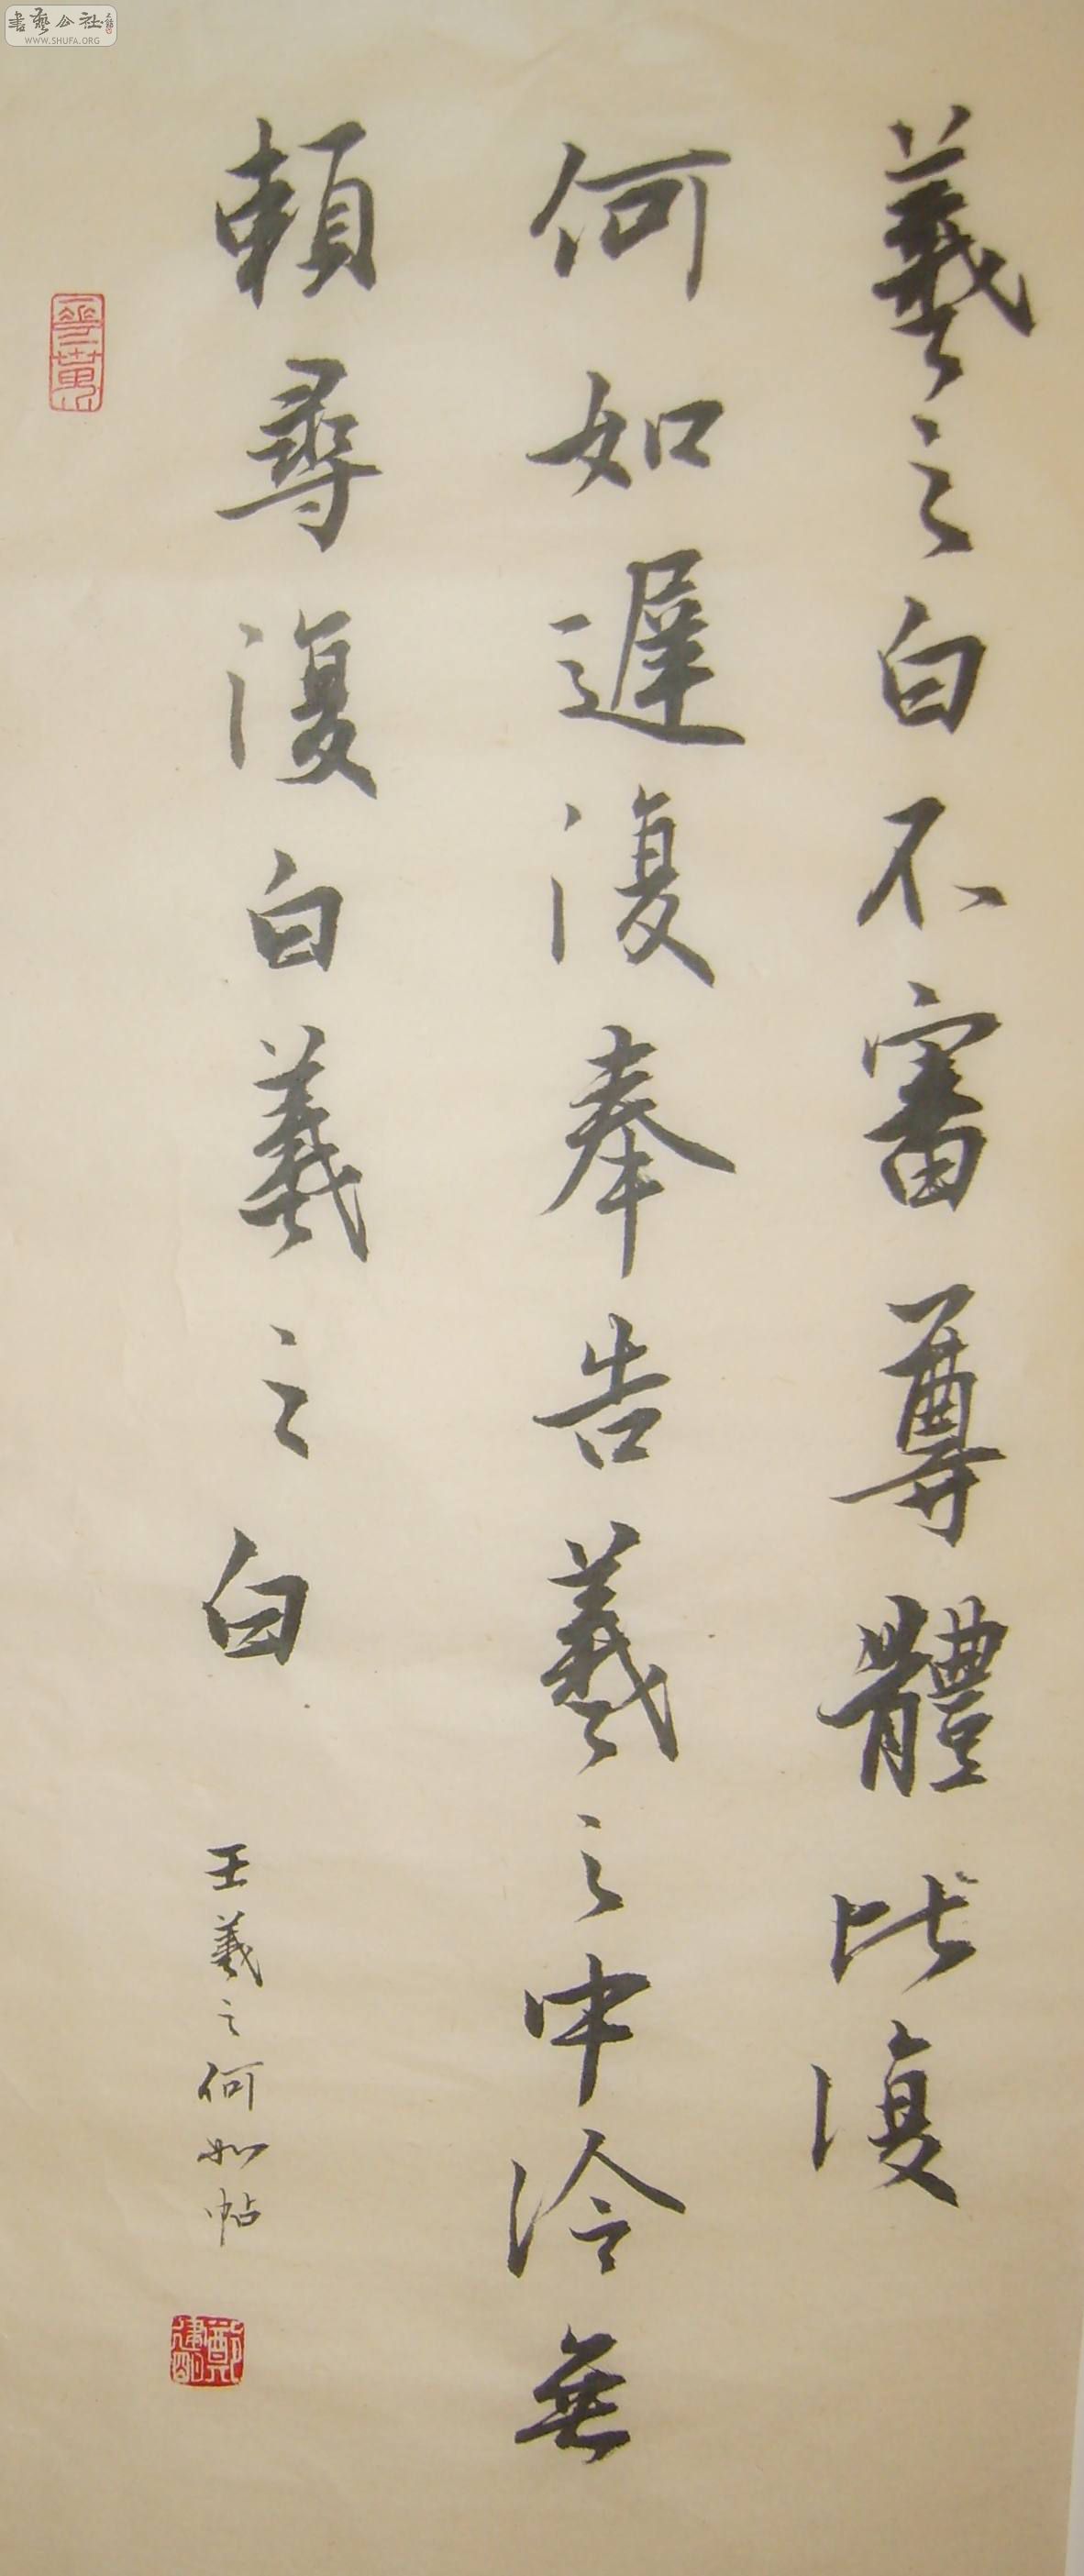 羲之白不審尊體比復
何如遲復奉告羲之中冷無
賴尋復白羲之白
王羲之何如帖
鄭建明
書藝公社
WWW.SHUFA.ORG